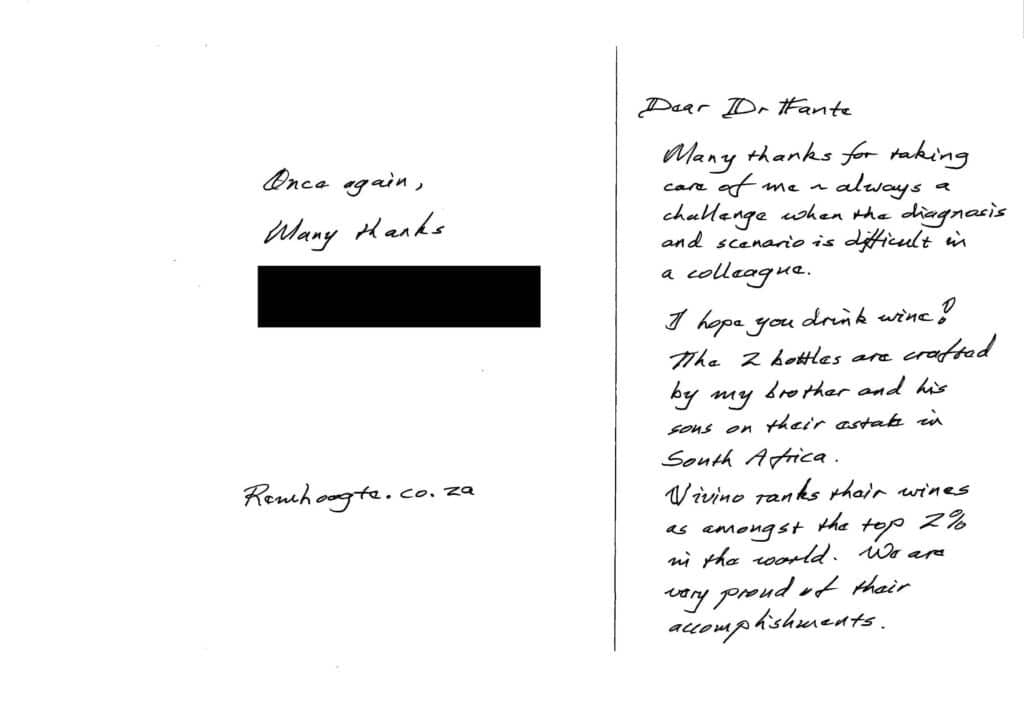 Dear Dr Fante
Many thanks for taking
care of me ~ always a
challenge when the diagnosis
and scenario is difficult in
a colleague.
I hope you drink wine!
The 2 bottles are crafted
by my brother and his
sons on their estate in
South Africa.
Vivino ranks their wines
as amongst the top 2%
in the world. We are
very proud of their
accomplishments.
Once again,
Many thanks
Remhoogte.co.za